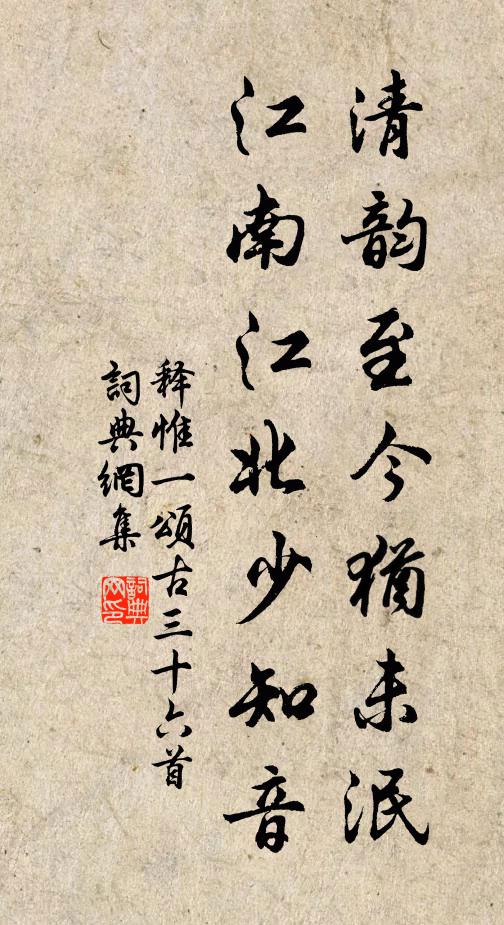 清韵至今猶未泯
江南江北少知音
释惟一頌古三十六首
詞典網集
詞典网印